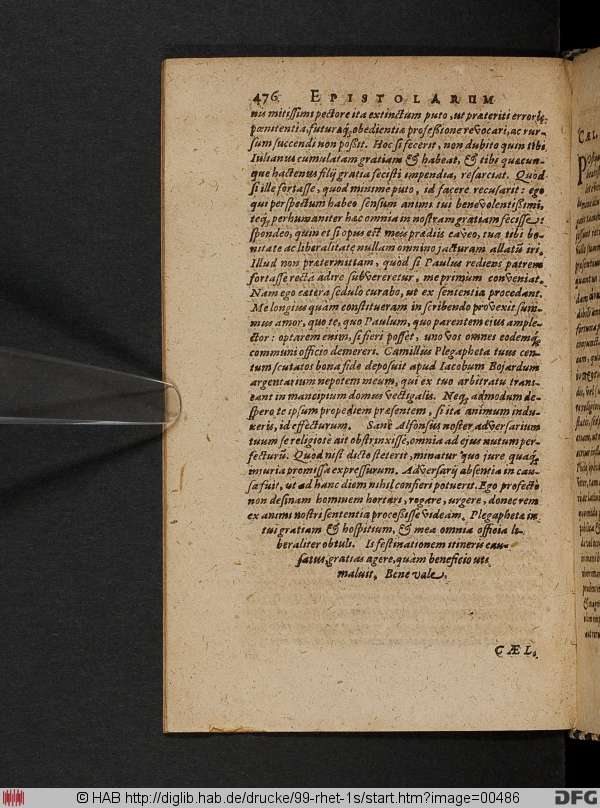 476 EPISTOLARUM
nu mitissimi pectore ita extinctum puto, ut præteriti erroris
pœnitentia, futuræq́, obedientiæ professione revocari, ac rur-
sum succendi non possit. Hoc si fecerit, non dubito quin tibi
Iulianus cumulatam gratiam & habeat, & tibi quæcun-
que hactenus filij gratia fecisti impendia, resarciat. Quod
si ille fortasse, quod minime puto, id facere recusarit: ego
qui perspectum habeo sensum animi tui benevolentissimi,
teq́, perhumaniter hac omnia in nostram gratiam fecisse:
spondeo, quin et si opus est meis prædiis caveo, tua tibi bo-
nitate ac liberalitate nullam omnino jacturam allatũ iri.
Illud non prætermittam, quòd si Paulus rediens patrem
fortasse rectà adire subvereretur, me primum conveniat.
Nam ego cætera sedulo curabo, ut ex sententia procedant.
Me longius quàm constitueram in scribendo provexit sum-
mus amor, quo te, quo Paulum, quo parentem ejus ample-
ctor: optarem enim, si fieri posset, uno vos omnes eodemq́,
communi officio demereri. Camillus Plegapheta tuus cen-
tum scutatos bona fide deposuit apud Iacobum Bojardum
argentarium nepotem meum, qui ex tuo arbitratu trans-
eant in mancipium domus vectigalis. Neq́, admodum de-
spero te ipsum propediem præsentem, si ita animum indu-
xeris, id effecturum. Sanè Alfonsus noster adversarium
tuum se religiosè ait obstrinxisse, omnia ad ejus nutum per-
fecturũ. Quod nisi dicto steterit, minatur quo jure quaq́,
injuria promissa expressurum. Adversarij absentia in cau-
sa fuit, ut ad hanc diem nihil confieri potuerit. Ego profectò
non desinam hominem hortari, rogare, urgere, donec rem
ex animi nostri sententia processisse videam. Plegapheta in
tui gratiam & hospitium, & mea omnia officia li-
beraliter obtuli. Is festinationem itineris cau-
satus, gratias agere, quàm beneficio uti
maluit. Bene vale.
CÆL.
CÆL.
© HAB http://diglib.hab.de/drucke/99-rhet-1s/start.htm?image=00486
DFG